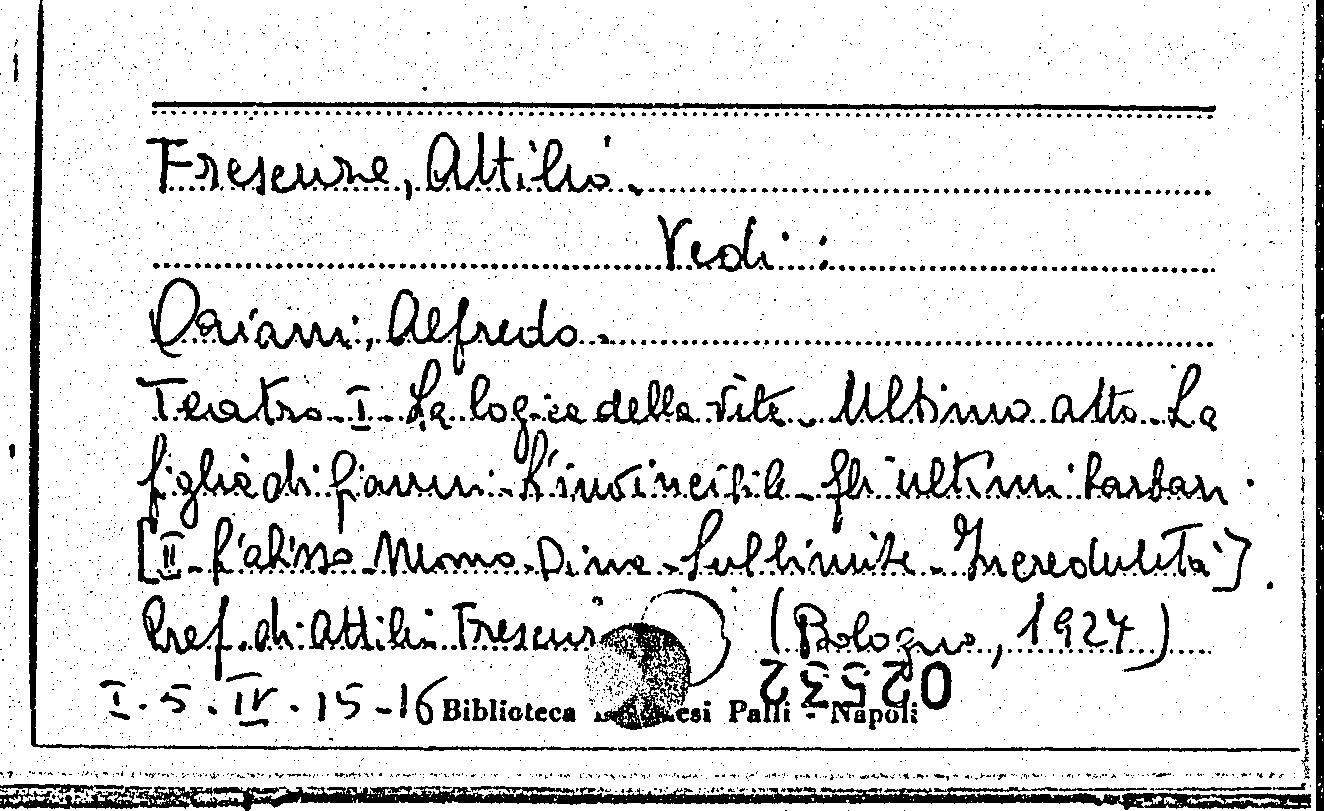 Frescura, Attilio.
Vedi:
Oriani, Alfredo.
Teatro - I - La logica della vita - Ultimo atto - La
figlia di Gianni - L'invincibile - Gli ultimi barbari.
[II - L'abisso - Momo - Dina - Sul limite - Incredulità].
Pref. di Attilio (Bologna, 1924)
I.5.IV.15-16 Biblioteca Palli - Napoli
02532